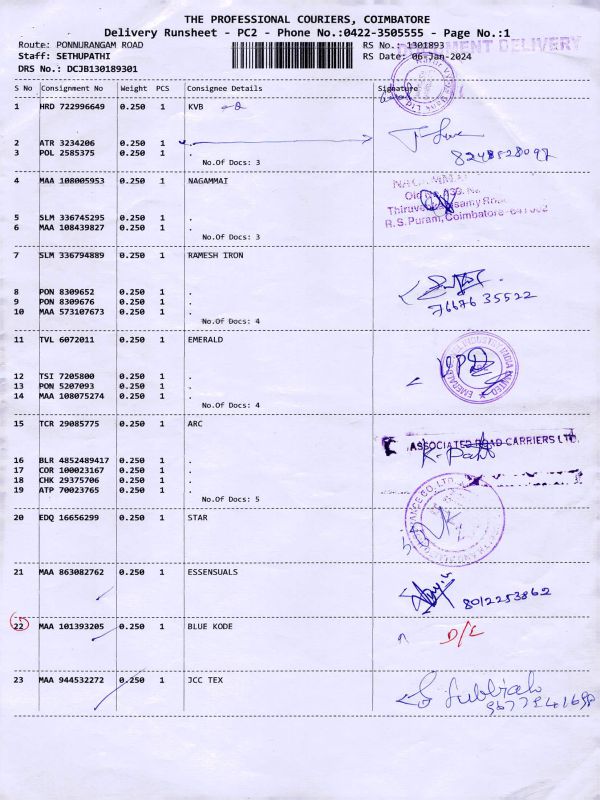 THE PROFESSIONAL COURIERS, COIMBATORE
Delivery Runsheet - PC2 - Phone No.:0422-3505555 - Page No.:1
Route: PONNURANGAM ROAD RS No.: 1301893
Staff: SETHUPATHI RS Date: 06-Jan-2024
DRS No.: DCJB130189301
DELIVERY
S No Consignment No Weight PCS Consignee Details Signature
1 HRD 722996649 0.250 1 KVB
2 ATR 3234206 0.250 1 .
3 POL 2585375 0.250 1 .
8248528097
No.Of Docs: 3
4 MAA 108005953 0.250 1 NAGAMMAI
R.S.Puram, Coimbatore
5 SLM 336745295 0.250 1 .
6 MAA 108439827 0.250 1 .
No.Of Docs: 3
7 SLM 336794889 0.250 1 RAMESH IRON
8 PON 8309652 0.250 1 .
9 PON 8309676 0.250 1 .
10 MAA 573107673 0.250 1 .
76676 35522
No.Of Docs: 4
11 TVL 6072011 0.250 1 EMERALD
12 TSI 7205800 0.250 1 .
13 PON 5207093 0.250 1 .
14 MAA 108075274 0.250 1 .
No.Of Docs: 4
15 TCR 29085775 0.250 1 ARC
ASSOCIATED ROAD CARRIERS LTD.
16 BLR 4852489417 0.250 1 .
17 COR 100023167 0.250 1 .
18 CHK 29375706 0.250 1 .
19 ATP 70023765 0.250 1 .
No.Of Docs: 5
20 EDQ 16656299 0.250 1 STAR
21 MAA 863082762 0.250 1 ESSENSUALS
8012253862
22 MAA 101393205 0.250 1 BLUE KODE D/L
23 MAA 944532272 0.250 1 JCC TEX Subbiah